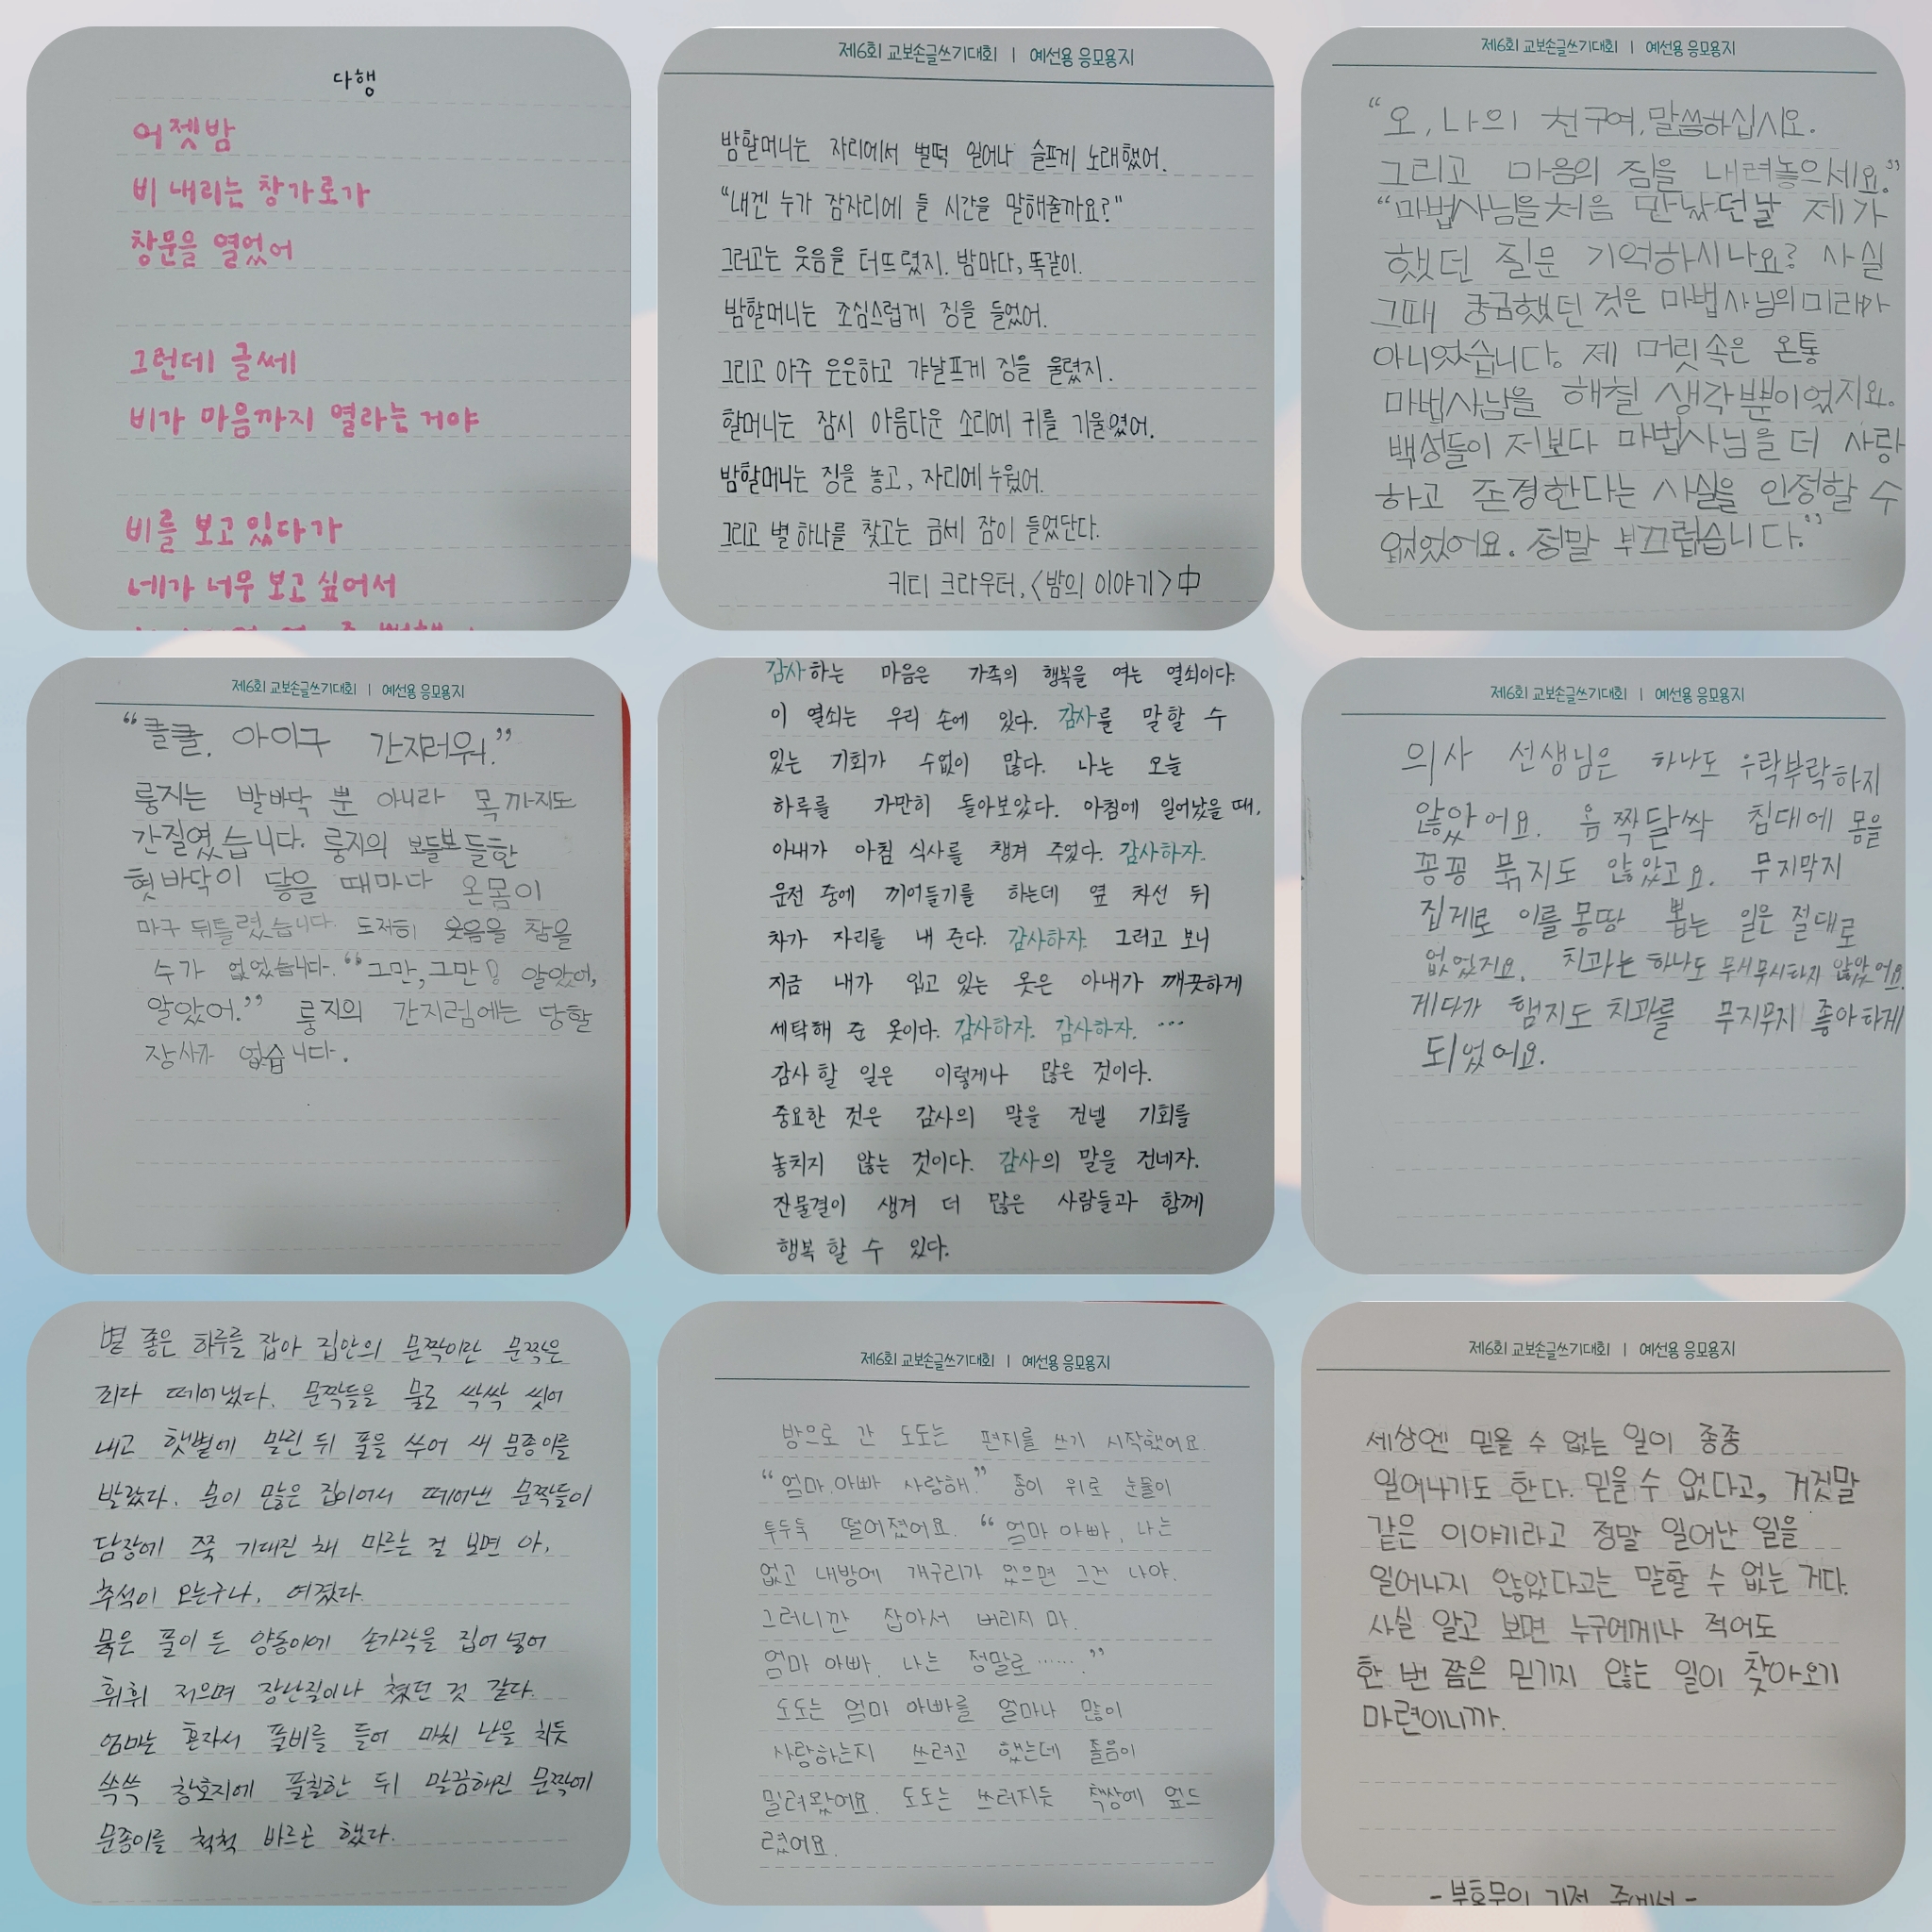 다행
어젯밤
비 내리는 창가로가
창문을 열었어
그런데 글쎄
비가 마음까지 열라는 거야
비를 보고 있다가
네가 너무 보고 싶어서
제6회 교보손글쓰기대회 | 예선용 응모용지
밤할머니는 자리에서 벌떡 일어나 슬프게 노래했어.
"내겐 누가 잠자리에 들 시간을 말해줄까요?"
그러고는 웃음을 터뜨렸지. 밤마다, 똑같이.
밤할머니는 조심스럽게 징을 들었어.
그리고 아주 은은하고 갸날프게 징을 울렸지.
할머니는 잠시 아름다운 소리에 귀를 기울였어.
밤할머니는 징을 놓고, 자리에 누웠어.
그리고 별 하나를 찾고는 금세 잠이 들었단다.
키티 크라우터, <밤의 이야기> 中
제6회 교보손글쓰기대회 | 예선용 응모용지
"오, 나의 친구여, 말씀하십시오.
그리고 마음의 짐을 내려놓으세요."
"마법사님을 처음 만났던날 제가
했던 질문 기억하시나요? 사실
그때 궁금했던 것은 마법사님의 미래가
아니었습니다. 제 머릿속은 온통
마법사님을 해칠 생각뿐이었지요.
백성들이 저보다 마법사님을 더 사랑
하고 존경한다는 사실을 인정할 수
없었어요. 정말 부끄럽습니다."
제6회 교보손글쓰기대회 | 예선용 응모용지
"클클. 아이구 간지러워."
룽지는 발바닥 뿐 아니라 목까지도
간질였습니다. 룽지의 보들보들한
혓바닥이 닿을 때마다 온몸이
마구 뒤틀렸습니다. 도저히 웃음을 참을
수가 없었습니다. "그만, 그만! 알았어,
알았어." 룽지의 간지럼에는 당할
장사가 없습니다.
감사하는 마음은 가족의 행복을 여는 열쇠이다.
이 열쇠는 우리 손에 있다. 감사를 말할 수
있는 기회가 수없이 많다. 나는 오늘
하루를 가만히 돌아보았다. 아침에 일어났을 때,
아내가 아침 식사를 챙겨 주었다. 감사하자.
운전 중에 끼어들기를 하는데 옆 차선 뒤
차가 자리를 내 준다. 감사하자. 그러고 보니
지금 내가 입고 있는 옷은 아내가 깨끗하게
세탁해 준 옷이다. 감사하자. 감사하자. …
감사 할 일은 이렇게나 많은 것이다.
중요한 것은 감사의 말을 건넬 기회를
놓치지 않는 것이다. 감사의 말을 건네자.
잔물결이 생겨 더 많은 사람들과 함께
행복 할 수 있다.
제6회 교보손글쓰기대회 | 예선용 응모용지
의사 선생님은 하나도 우락부락하지
않았어요. 옴짝달싹 침대에 몸을
꽁꽁 묶지도 않았고요. 무지막지
집게로 이를 몽땅 뽑는 일은 절대로
없었지요. 치과는 하나도 무시무시하지 않았어요.
게다가 햄지도 치과를 무지무지 좋아하게
되었어요.
볕 좋은 하루를 잡아 집안의 문짝이란 문짝은
죄다 떼어냈다. 문짝들을 물로 싹싹 씻어
내고 햇볕에 말린 뒤 풀을 쑤어 새 문종이를
발랐다. 문이 많은 집이어서 떼어낸 문짝들이
담장에 쭉 기대진 채 마르는 걸 보면 아,
추석이 오는구나, 여겼다.
묽은 풀이 든 양동이에 손가락을 집어넣어
휘휘 저으며 장난질이나 쳤던 것 같다.
엄마는 혼자서 풀비를 들어 마치 난을 치듯
쓱쓱 창호지에 풀칠한 뒤 말끔해진 문짝에
문종이를 척척 바르곤 했다.
제6회 교보손글쓰기대회 | 예선용 응모용지
방으로 간 도도는 편지를 쓰기 시작했어요.
"엄마.아빠 사랑해." 종이 위로 눈물이
투두둑 떨어졌어요. "엄마 아빠, 나는
없고 내방에 개구리가 있으면 그건 나야.
그러니깐 잡아서 버리지 마.
엄마 아빠. 나는 정말로……."
도도는 엄마 아빠를 얼마나 많이
사랑하는지 쓰려고 했는데 졸음이
밀려왔어요. 도도는 쓰러지듯 책상에 엎드
렸어요.
제6회 교보손글쓰기대회 | 예선용 응모용지
세상엔 믿을 수 없는 일이 종종
일어나기도 한다. 믿을 수 없다고, 거짓말
같은 이야기라고 정말 일어난 일을
일어나지 않았다고는 말할 수 없는 거다.
사실 알고 보면 누구에게나 적어도
한 번 쯤은 믿기지 않는 일이 찾아오기
마련이니까.